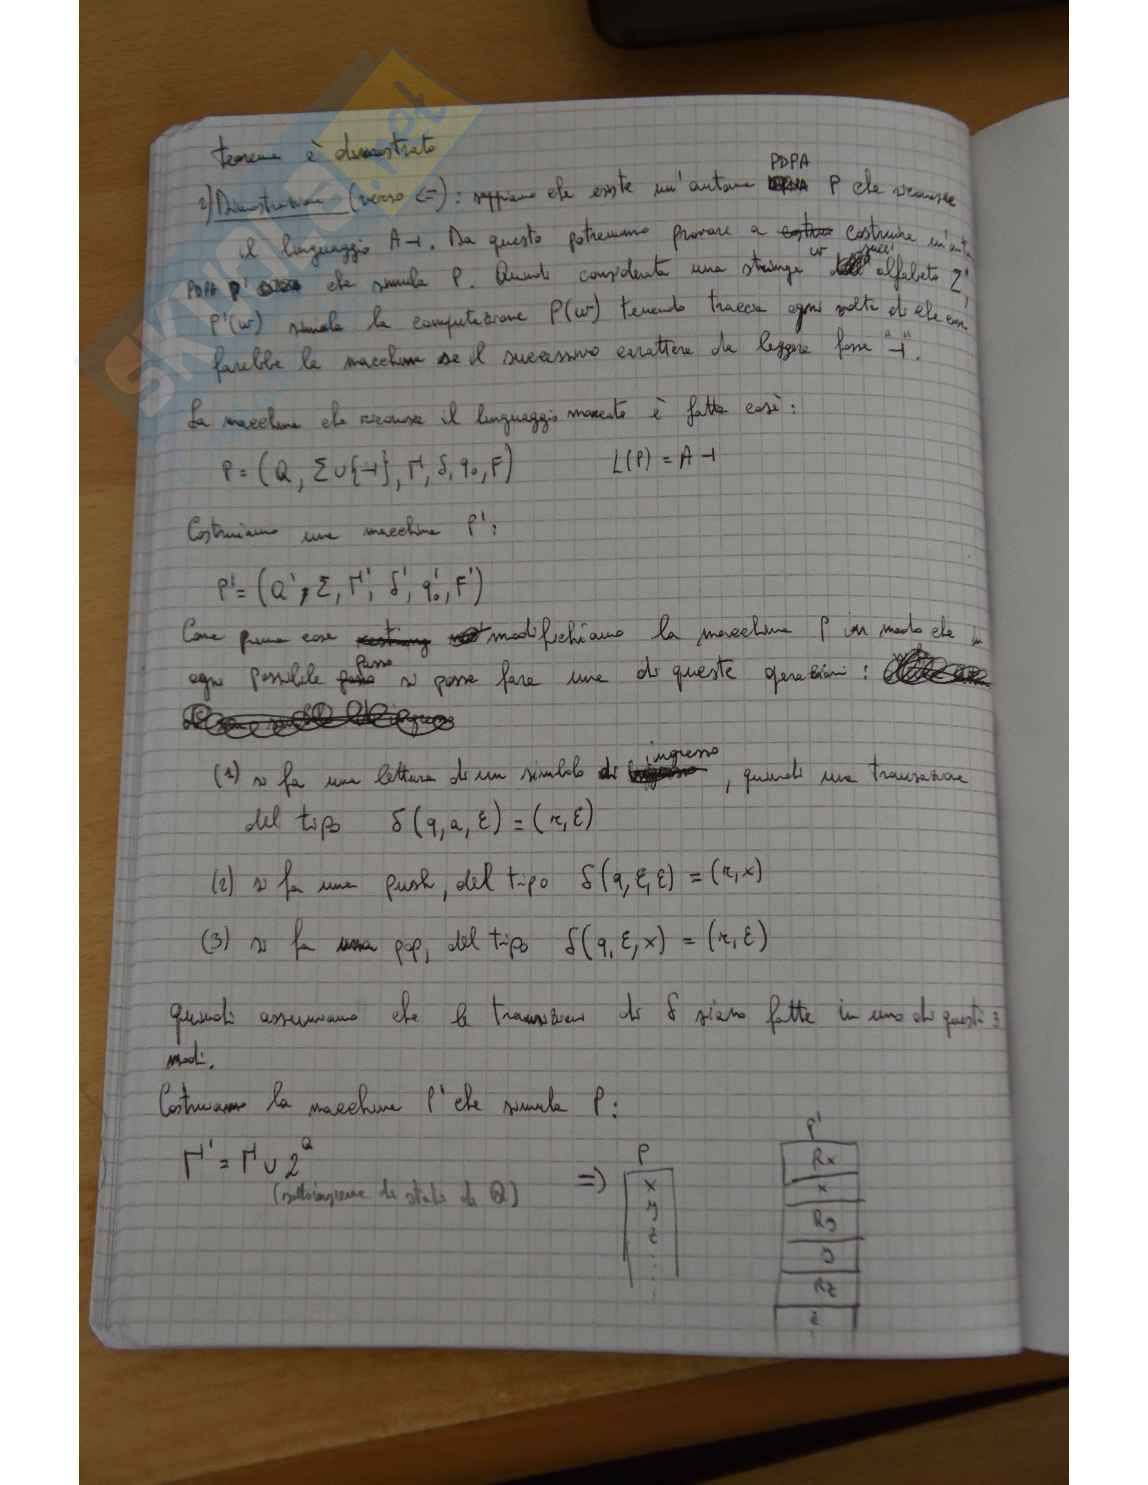 teorema è dimostrato
2) Dimostrazione (verso <=): sappiamo che esiste un'automa PDPA P che riconosce
il linguaggio A⊣. Da questo potremmo provare a costruire un'
PDPA P' che simula P. Quindi considerata una stringa w sull'alfabeto Σ,
P'(w) simula la computazione P(w) tenendo traccia ogni volta di che cosa
farebbe la macchina se il successivo carattere da leggere fosse "⊣".
La macchina che riconosce il linguaggio marcato è fatta così:
P = (Q, Σ∪{⊣}, Γ, δ, q₀, F) L(P) = A⊣
Costruiamo una macchina P':
P' = (Q', Σ, Γ', δ', q₀', F')
Come prima cosa modifichiamo la macchina P in modo che in
ogni possibile passo si possa fare una di queste operazioni:
(1) si fa una lettura di un simbolo di ingresso, quindi una transizione
del tipo δ(q, a, ε) = (r, ε)
(2) si fa una push, del tipo δ(q, ε, ε) = (r, x)
(3) si fa una pop, del tipo δ(q, ε, x) = (r, ε)
quindi assumiamo che le transizioni di δ siano fatte in uno di questi 3
modi.
Costruiamo la macchina P' che simula P:
Γ' = Γ ∪ 2^Q
(sottoinsieme di stati di Q)
=>
P
x
y
z
P'
Rx
x
Ry
y
Rz
z
skuola.net